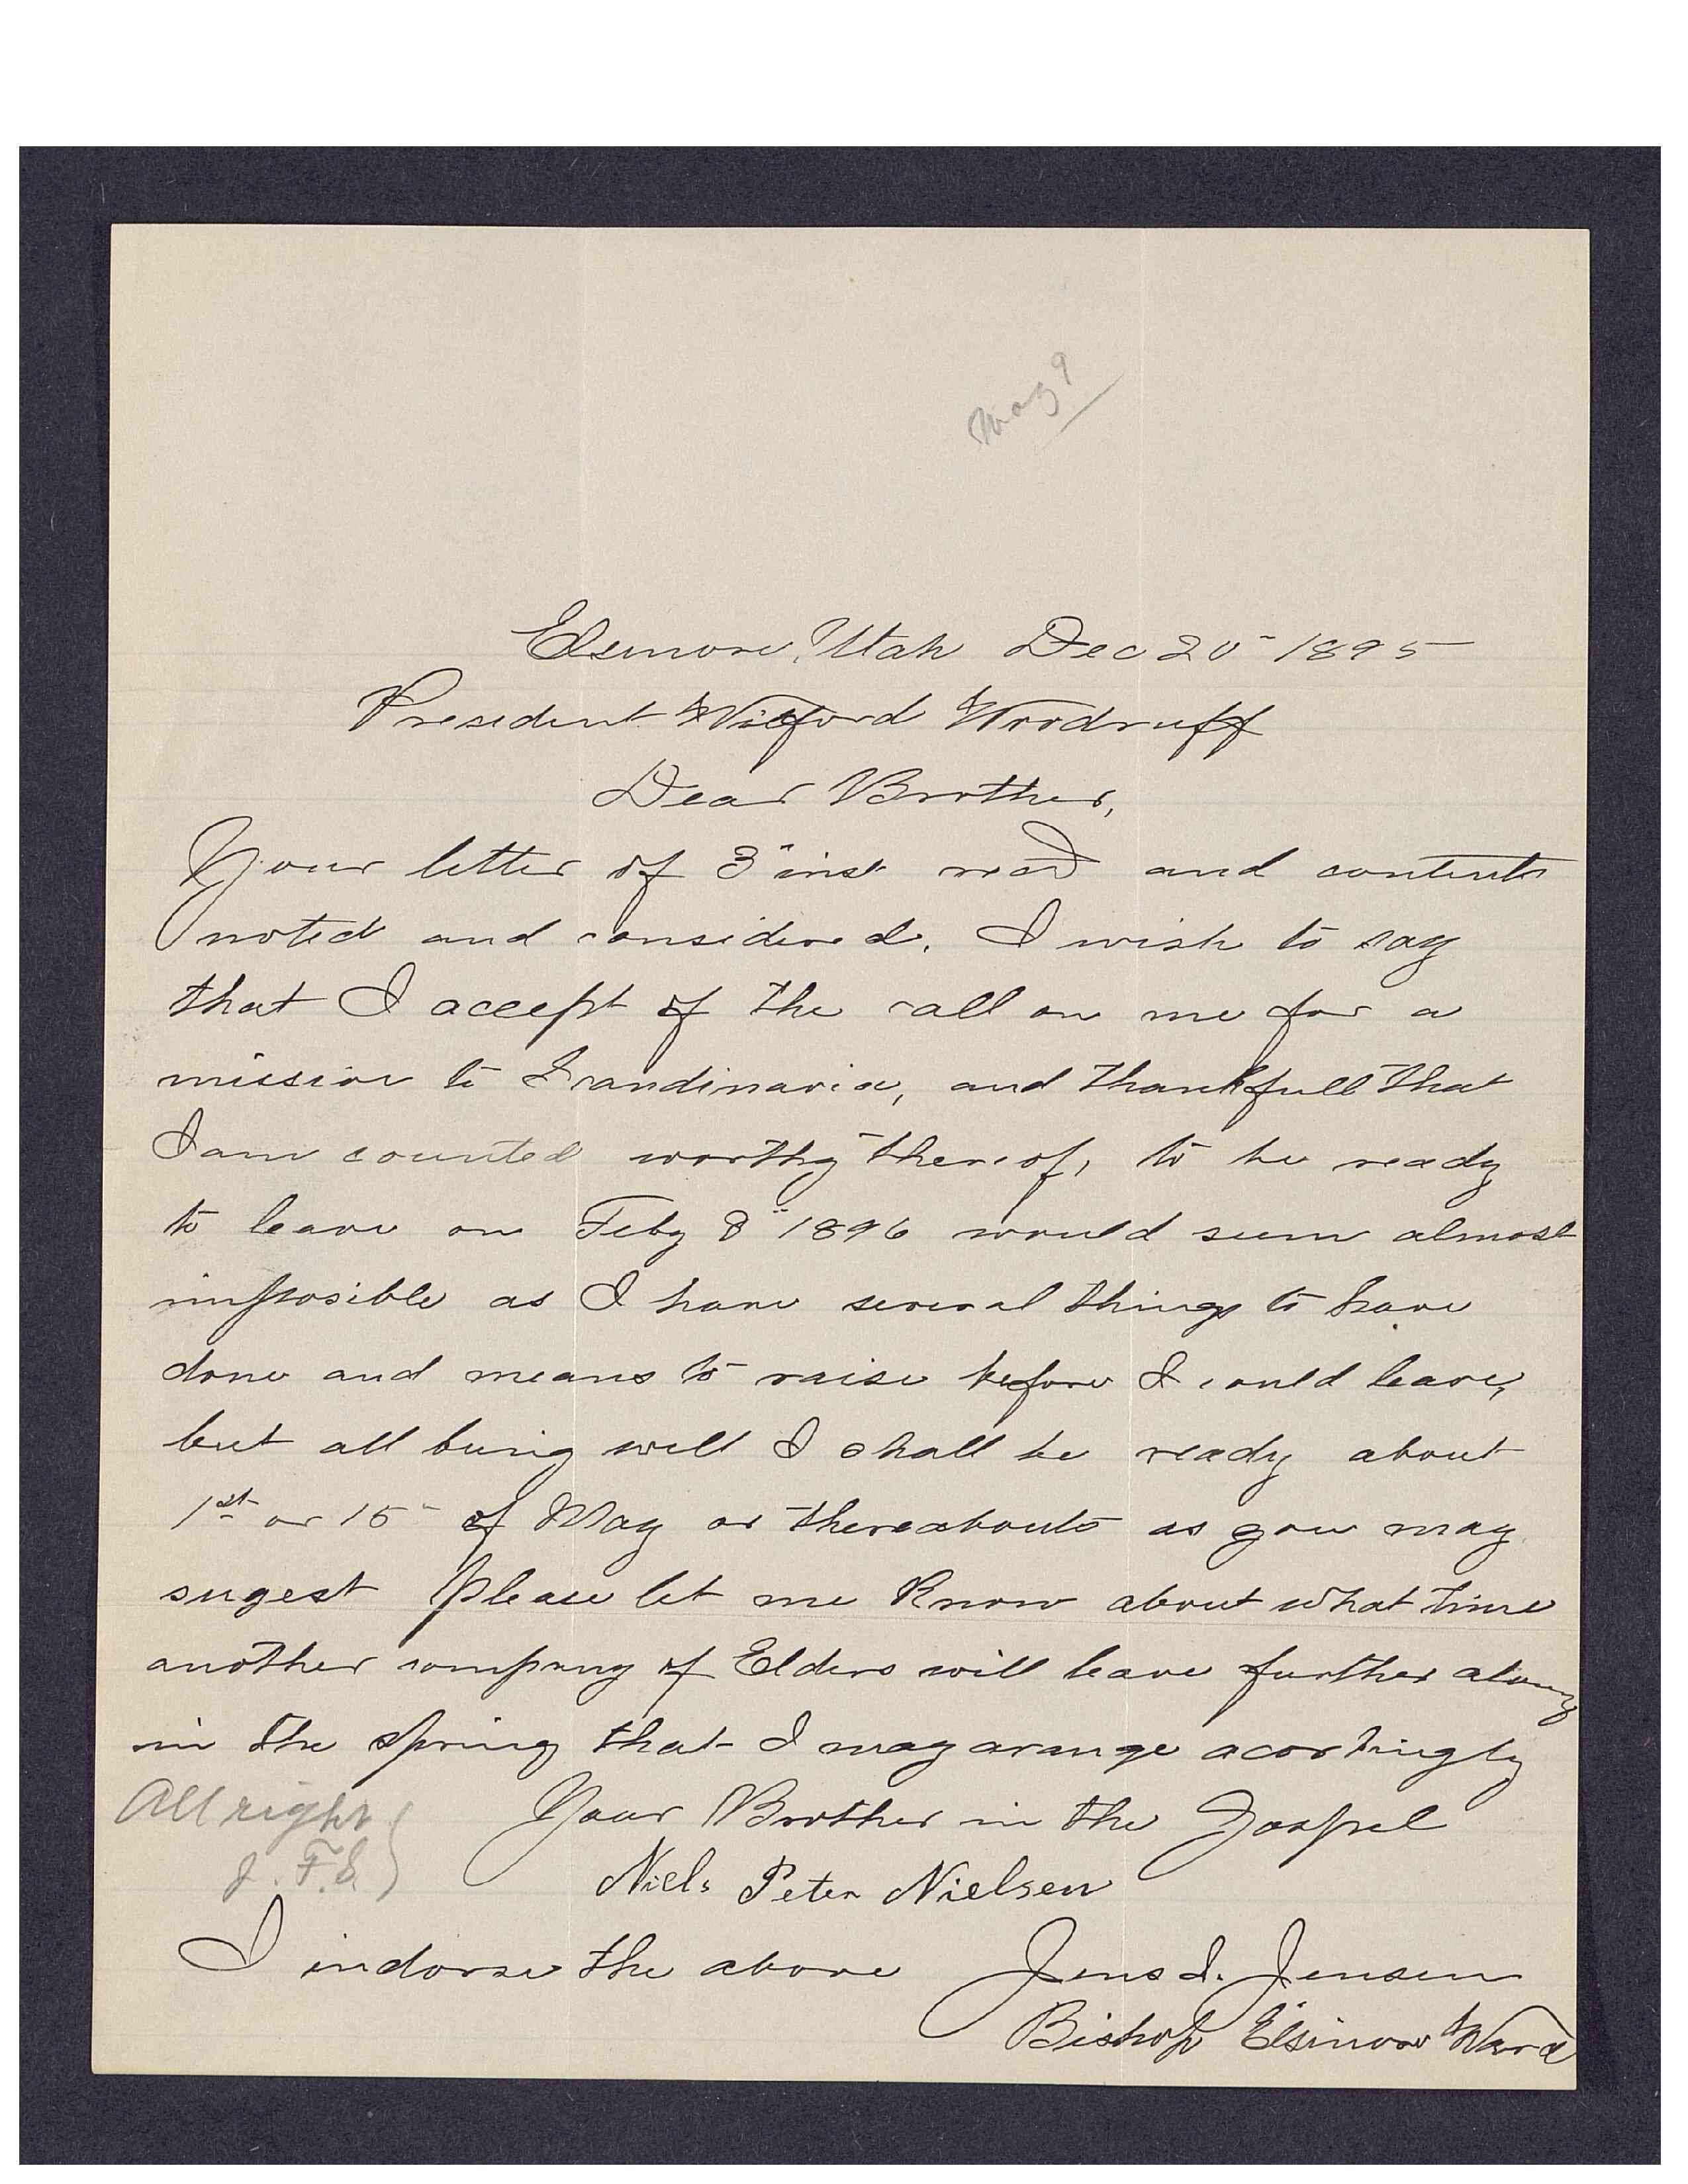 May 9
Elsinore, Utah Dec 20" 1895
President Wilford Woodruff
Dear Brother,
Your letter of 3" inst recd and contents
noted and considered. I wish to say
that I accept of the call on me for a
mission to Scandinavia, and thankfull that
I am counted worthy thereof, to be ready
to leave on Feby 8" 1896 would seem almost
impossible as I have several things to have
done and means to raise before I could leave,
but all being well I shall be ready about
1st or 15" of May or thereabouts as you may
sugest Please let me know about what time
another company of Elders will leave further along
in the spring that I may arange acortingly
Your Brother in the Gospel
All right
J. F. S.
Niels Peter Nielsen
I indorse the above Jens I. Jensen
Bishop Elsinore Ward